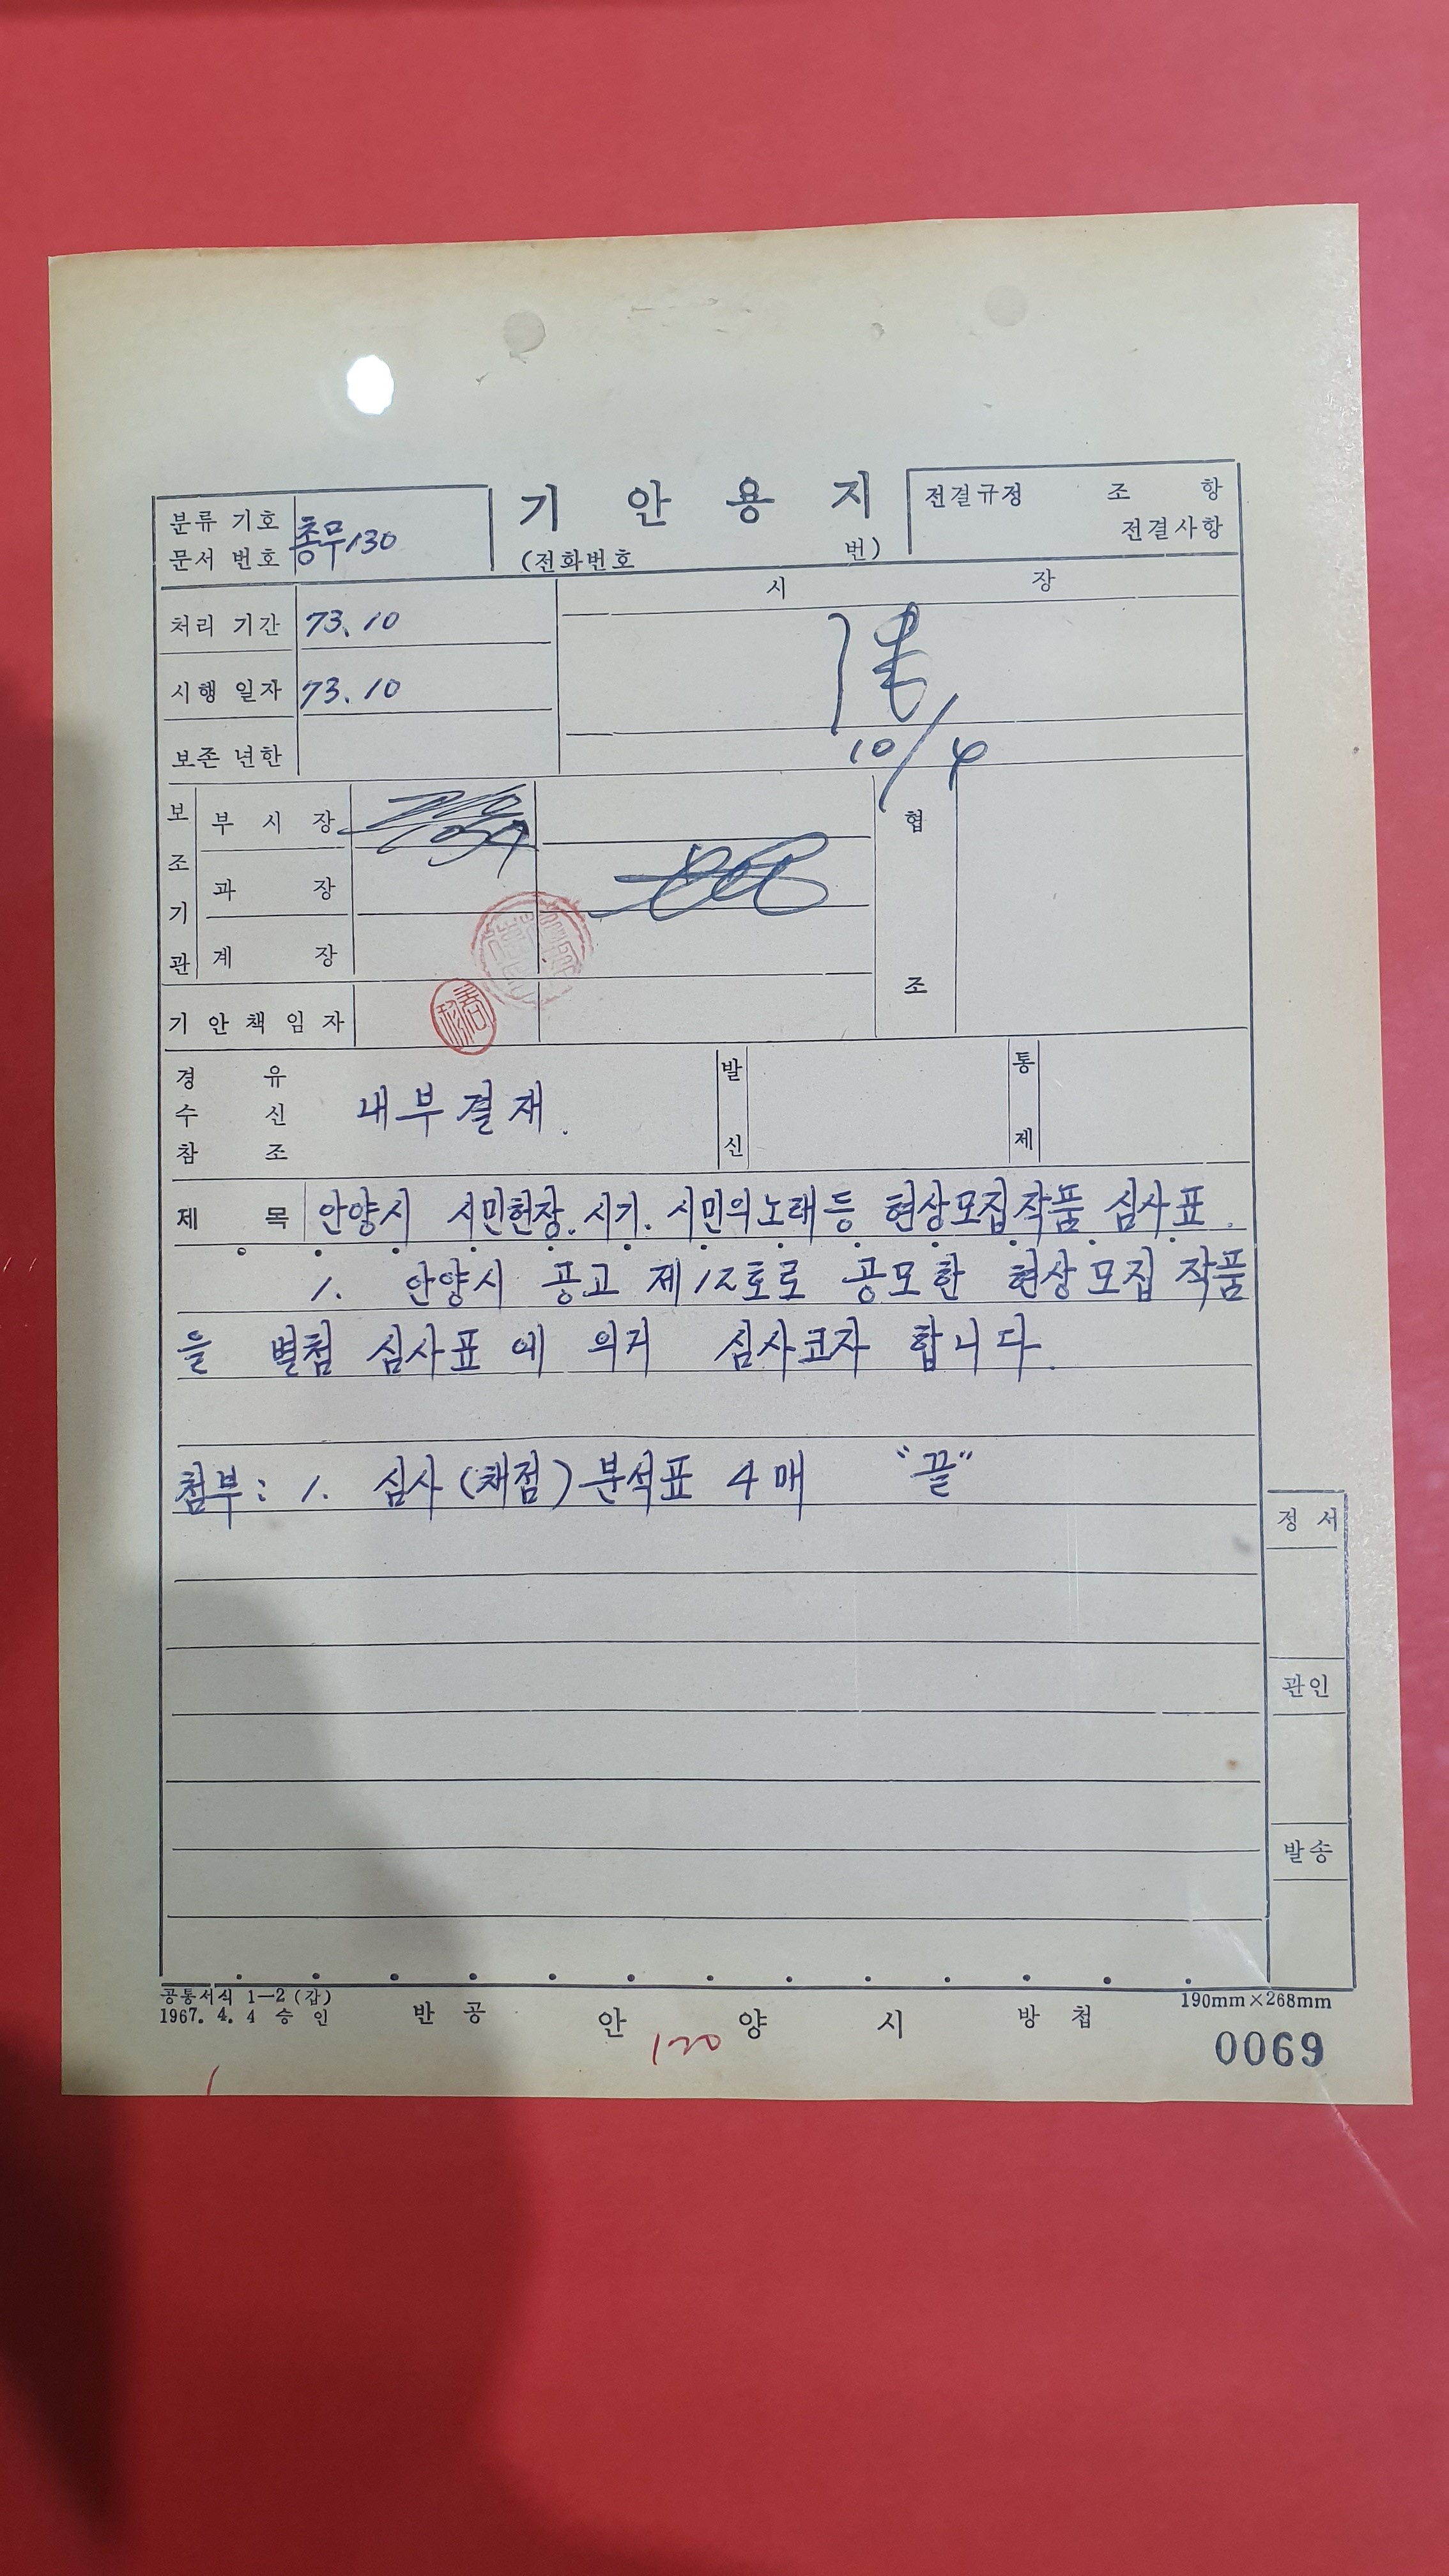 기 안 용 지
(전화번호 번)
분류 기호
문서 번호
총무130
전결규정 조 항
전결사항
처리 기간 73. 10
시행 일자 73. 10
보존 년한
시 장
10/4
보 조 기 관
부 시 장
과 장
계 장
기 안 책 임 자
협 조
경 유
수 신
참 조
내부결재.
발 신
통 제
제 목 안양시 시민헌장. 시기. 시민의노래등 현상모집작품 심사표.
1. 안양시 공고 제12호로 공모한 현상모집 작품
을 별첨 심사표에 의거 심사코자 합니다.
첨부 : 1. 심사(채점)분석표 4매 "끝"
정 서
관인
발송
공통서식 1—2 (갑)
1967. 4. 4 승 인
반 공 안 양 시 방 첩
190mm×268mm
120
0069